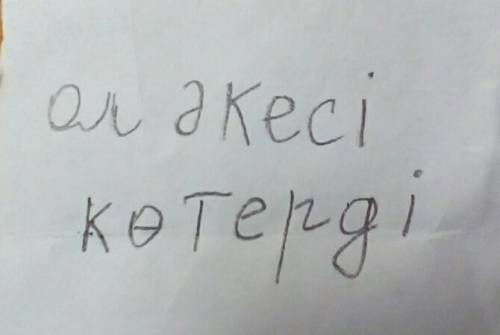 ал әкесі
көтерді